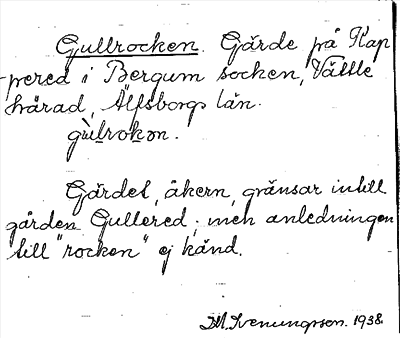 Gullrocken. Gärde på Kap
pered i Bergum socken, Vättle
härad, Älfsborgs län.
gùlrokən.
Gärdet, åkern, gränsar intill
gården Gullered; men anledningen
till "rocken" ej känd.
H. Svenungsson. 1938.